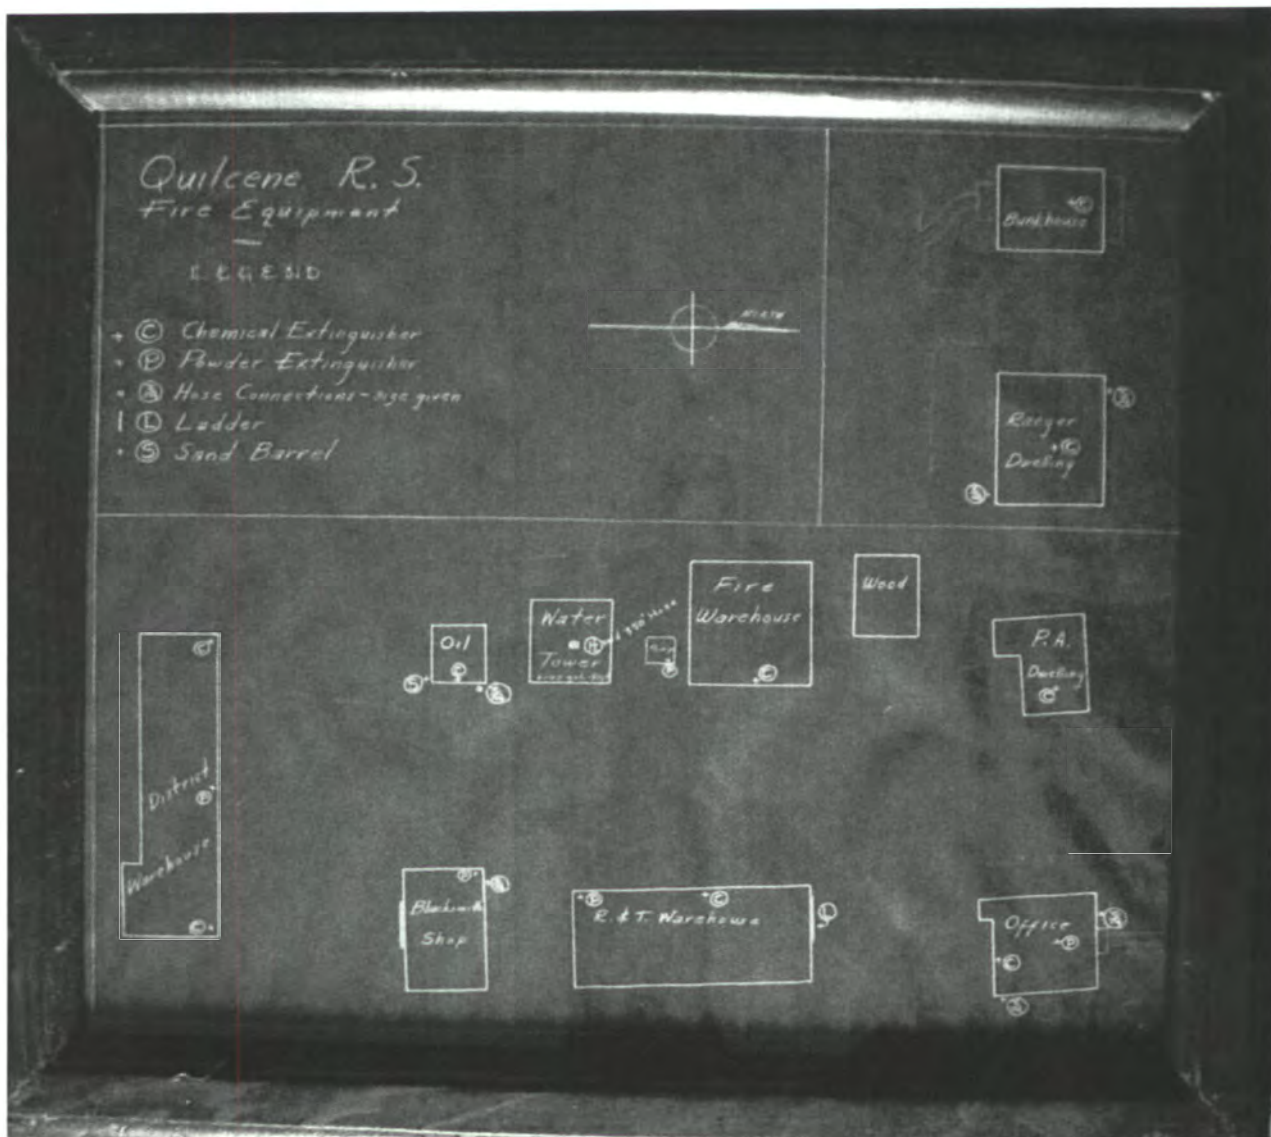 Quilcene R. S.
Fire Equipment
LEGEND
C Chemical Extinguisher
P Powder Extinguisher
Hose Connections - size given
L Ladder
S Sand Barrel
NORTH
C
Bunkhouse
Ranger
C
Dwelling
Fire
Warehouse
C
Wood
Water
H
Tower
350' Hose
Oil
C
S
P.A.
Dwelling
C
C
District
P
Warehouse
C
P
Blacksmith
Shop
P C
R. & T. Warehouse
L
Office
P
C